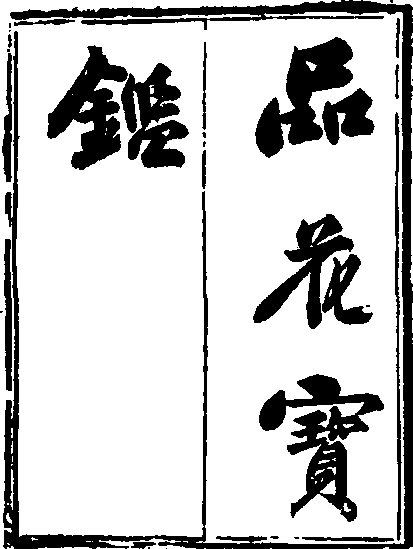 品花寶
鑑